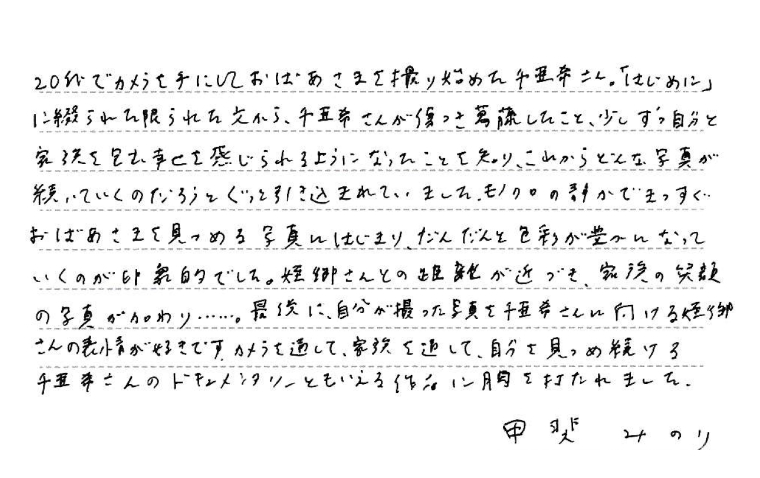 20代でカメラを手にしておばあさまを撮り始めた千亜希さん。「はじめに」
に綴られた限られた文から、千亜希さんが傷つき葛藤したこと、少しずつ自分と
家族を包む幸せを感じられるようになったことを知り、これからどんな写真が
続いていくのだろうとぐっと引き込まれていました。モノクロの静かでまっすぐ
おばあさまを見つめる写真にはじまり、だんだんと色彩が豊かになって
いくのが印象的でした。姪御さんとの距離が近づき、家族の笑顔
の写真が加わり……。最後に、自分が撮った写真を千亜希さんに向ける姪御
さんの表情が好きです。カメラを通して、家族を通して、自分を見つめ続ける
千亜希さんのドキュメンタリーともいえる作品に胸を打たれました。
甲斐 みのり